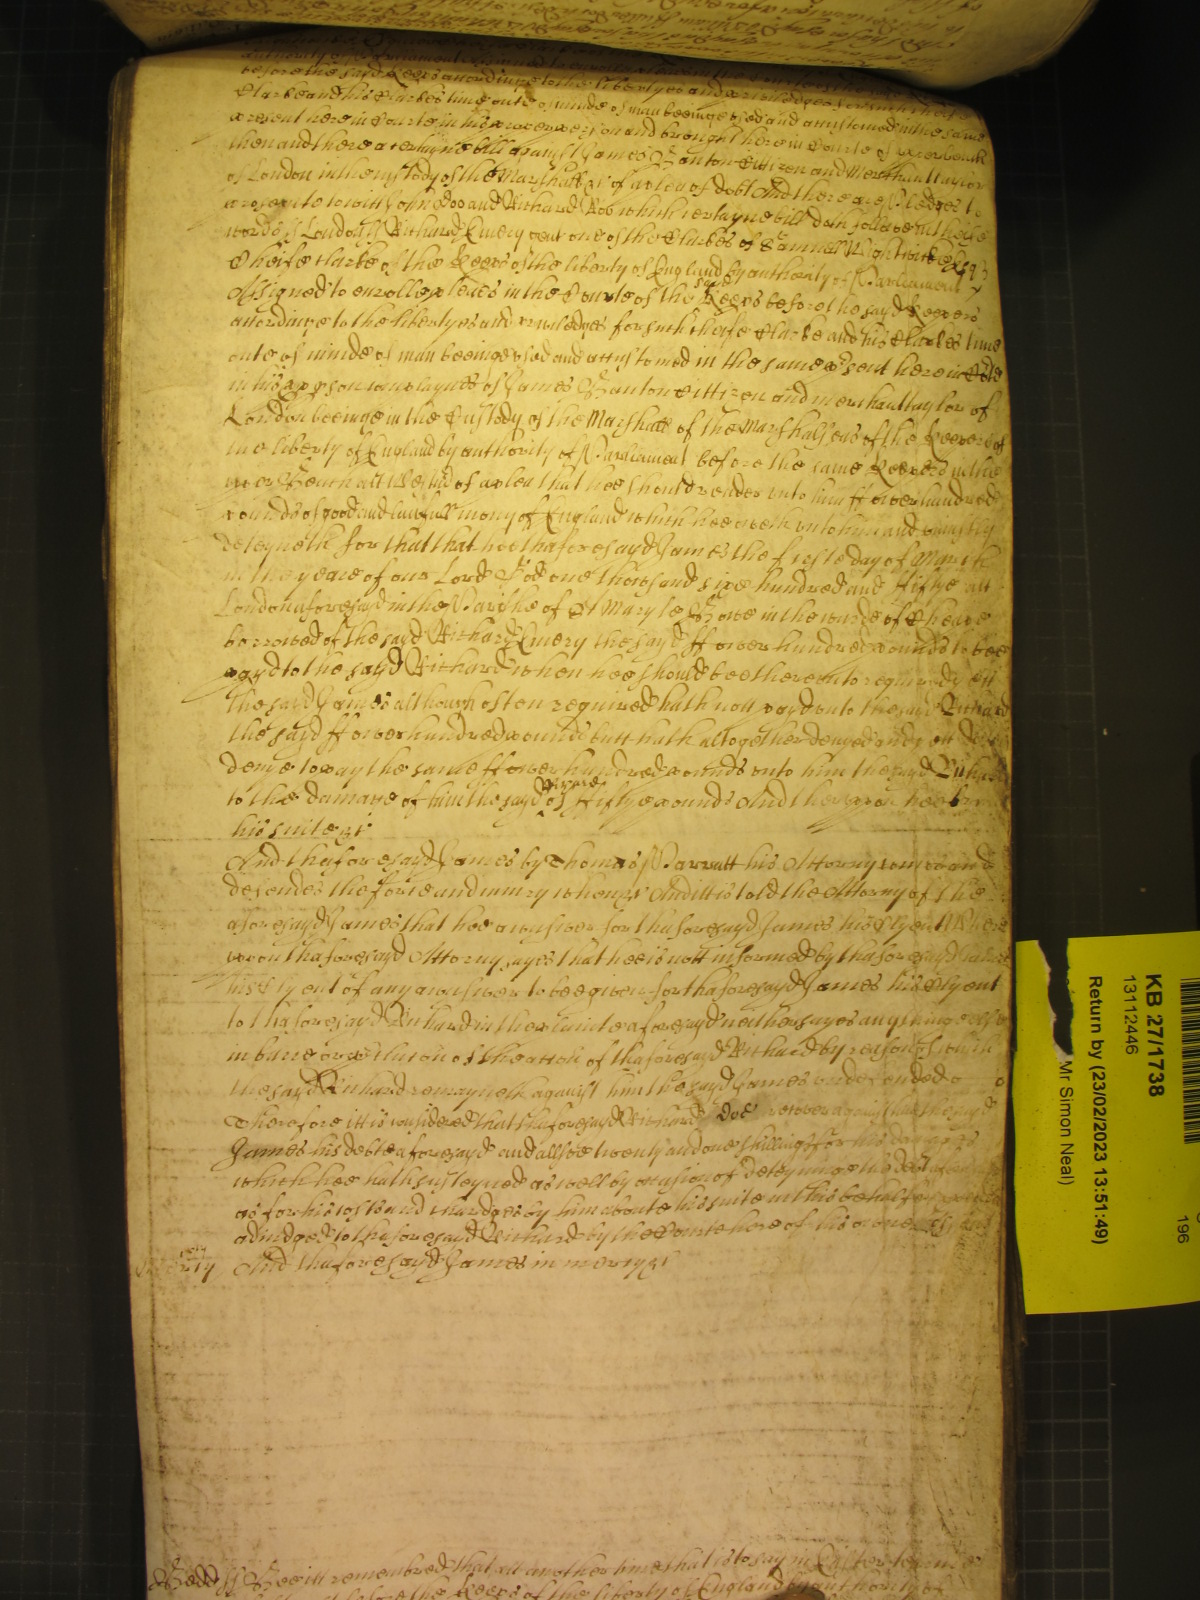 before the sayd Keepers accordinge to the libertyes and priviledges for such cheife
Clarke and his Clarkes time oute of minde of man beeinge used and accustomed in the same
present here in Courte in his proper person and brought here in Courte of
then and there a certayne bill against James Banton Cittizen and Merchanttaylor
of London in the custody of the Marshall &c of a plea of debt And there are Pledges to
prosecute to witt John Doo and Richard Roo which certayne bill doth followe in theise
words ss London ss Richard Emery gent one of the Clarkes of Samuell Wightwicke Esqr
Cheife Clarke of the Keepers of the liberty of England by authority of Parliament
Assigned to enrolle pleas in the Courte of the sayd Keepers before the sayd Keepers
accordinge to the libertyes and priviledges for such cheife Clarke and his Clarkes time
oute of minde of man beeinge used and accustomed in the same present here in Courte
in his pper pson complaynes of James Banton Cittizen and merchanttaylor of
London beeinge in the Custody of the Marshall of the Marshallsea of the Keepers of
the liberty of England by authority of Parliament before the same Keepers in the
upper Bench att Westmr of a plea that hee should render unto him ffower hundred
pounds of good and lawfull mony of England which hee oweth unto him and uniustly
deteyneth for that that hee thaforesayd James the firste day of March
in the yeare of our Lord God one thousand sixe hundred and fiftye att
London aforesayd in the Parishe of St Mary le Bowe in the warde of Cheape
borrowed of the sayd Richard Emery the sayd ffower hundred pounds to bee
payd to the sayd Richard when hee should bee thereunto required yett
the sayd James although often required hath nott payd unto the sayd Richard
the sayd ffower hundred pounds butt hath altogether denyed and yett doth
denye to pay the same ffower hundred pounds unto him the sayd Richard
to the damage of him the sayd Richard of ffiftye pounds And thereupon hee brings
his suite &c
And thaforesayd James by Thomas Parratt his Attorny comes and
defendes the force and iniury when &c And itt is told the Attorny of the
aforesayd James that hee answwer for thaforesayd James his Clyent Where
upon thaforesayd Attorny sayes that hee is nott informed by thaforesayd James
his Clyent of any answwer to bee given for thaforesayd James his Clyent
to thaforesayd Richard in the suite aforesayd neither sayes any thinge else
in barre or preclusion of the action of thaforesayd Richard by reason of which
the sayd Richard remayneth against him the sayd James undefended
Therefore itt is considered that thaforesayd Richard doe recover against him the sayd
James his debte aforesayd and allsoe twenty and one shillings for his damages
which hee hath susteyned as well by occasion of deteyninge his debt
as for his costs and chardges by him aboute his suite in this behalfe
adiudged to thaforesayd Richard by the Courte here of his owne
And thaforesayd James in mercy &c
mercy
Bedd ss Bee itt remembred that att another time that is to say in Easter terme
the Keepers of the liberty of England by authority of
KB 27/1738
13112446
Return by (23/02/2023 13:51:49)
Mr Simon Neal)
196